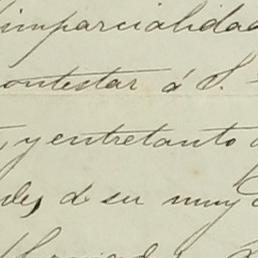 imparcialidad
contestar á S.
, y entretanto
des, de su muy